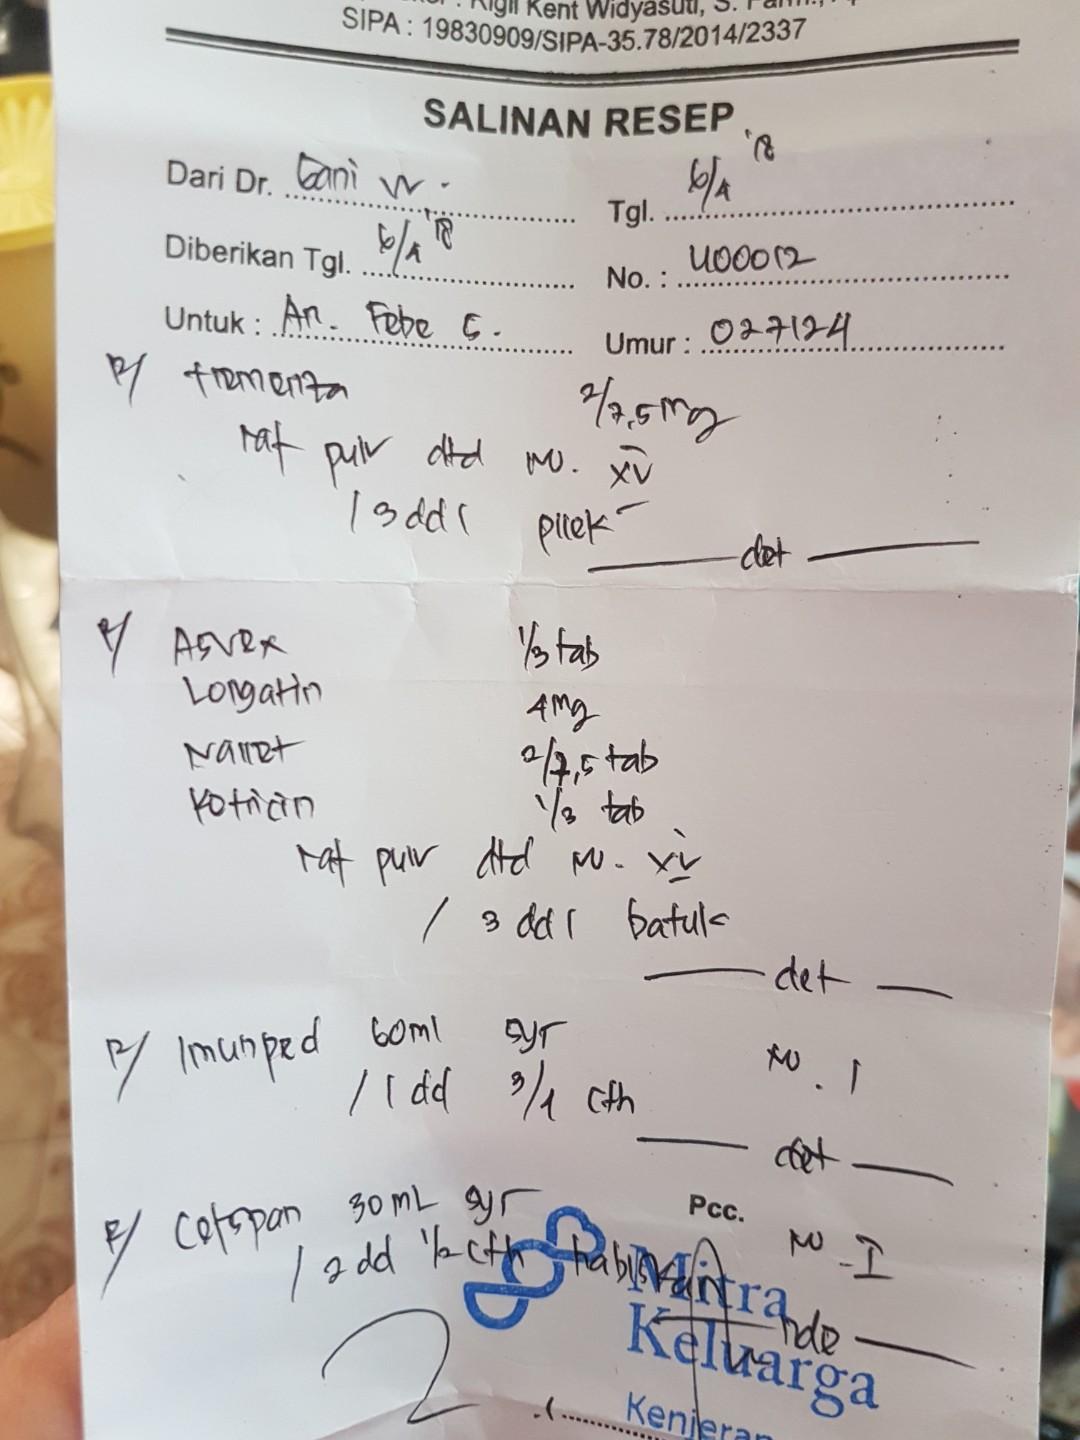 Rigil Kent Widyasuti, S. Farm.,
SIPA : 19830909/SIPA-35.78/2014/2337
SALINAN RESEP
Dari Dr. Gani W.
Tgl. 6/4 '18
Diberikan Tgl. 6/4 '18
No. : U00012
Untuk : An. Febe S.
Umur : 027124
R/ tremenza 2/7,5 mg
mf pulv dtd no. XV
/ 3 dd 1 pilek
det
R/ Asvex 1/3 tab
Longatin 4mg
Nairet 2/7,5 tab
Kotricin 1/3 tab
mf pulv dtd no. XV
/ 3 dd 1 batuk
det
R/ Imunped 60ml syr no. 1
/ 1 dd 3/4 cth
det
R/ Cefspan 30 mL syr no. I
Pcc.
/ 2 dd 1/2 cth habiskan
nde
2
Mitra
Keluarga
Kenjeran